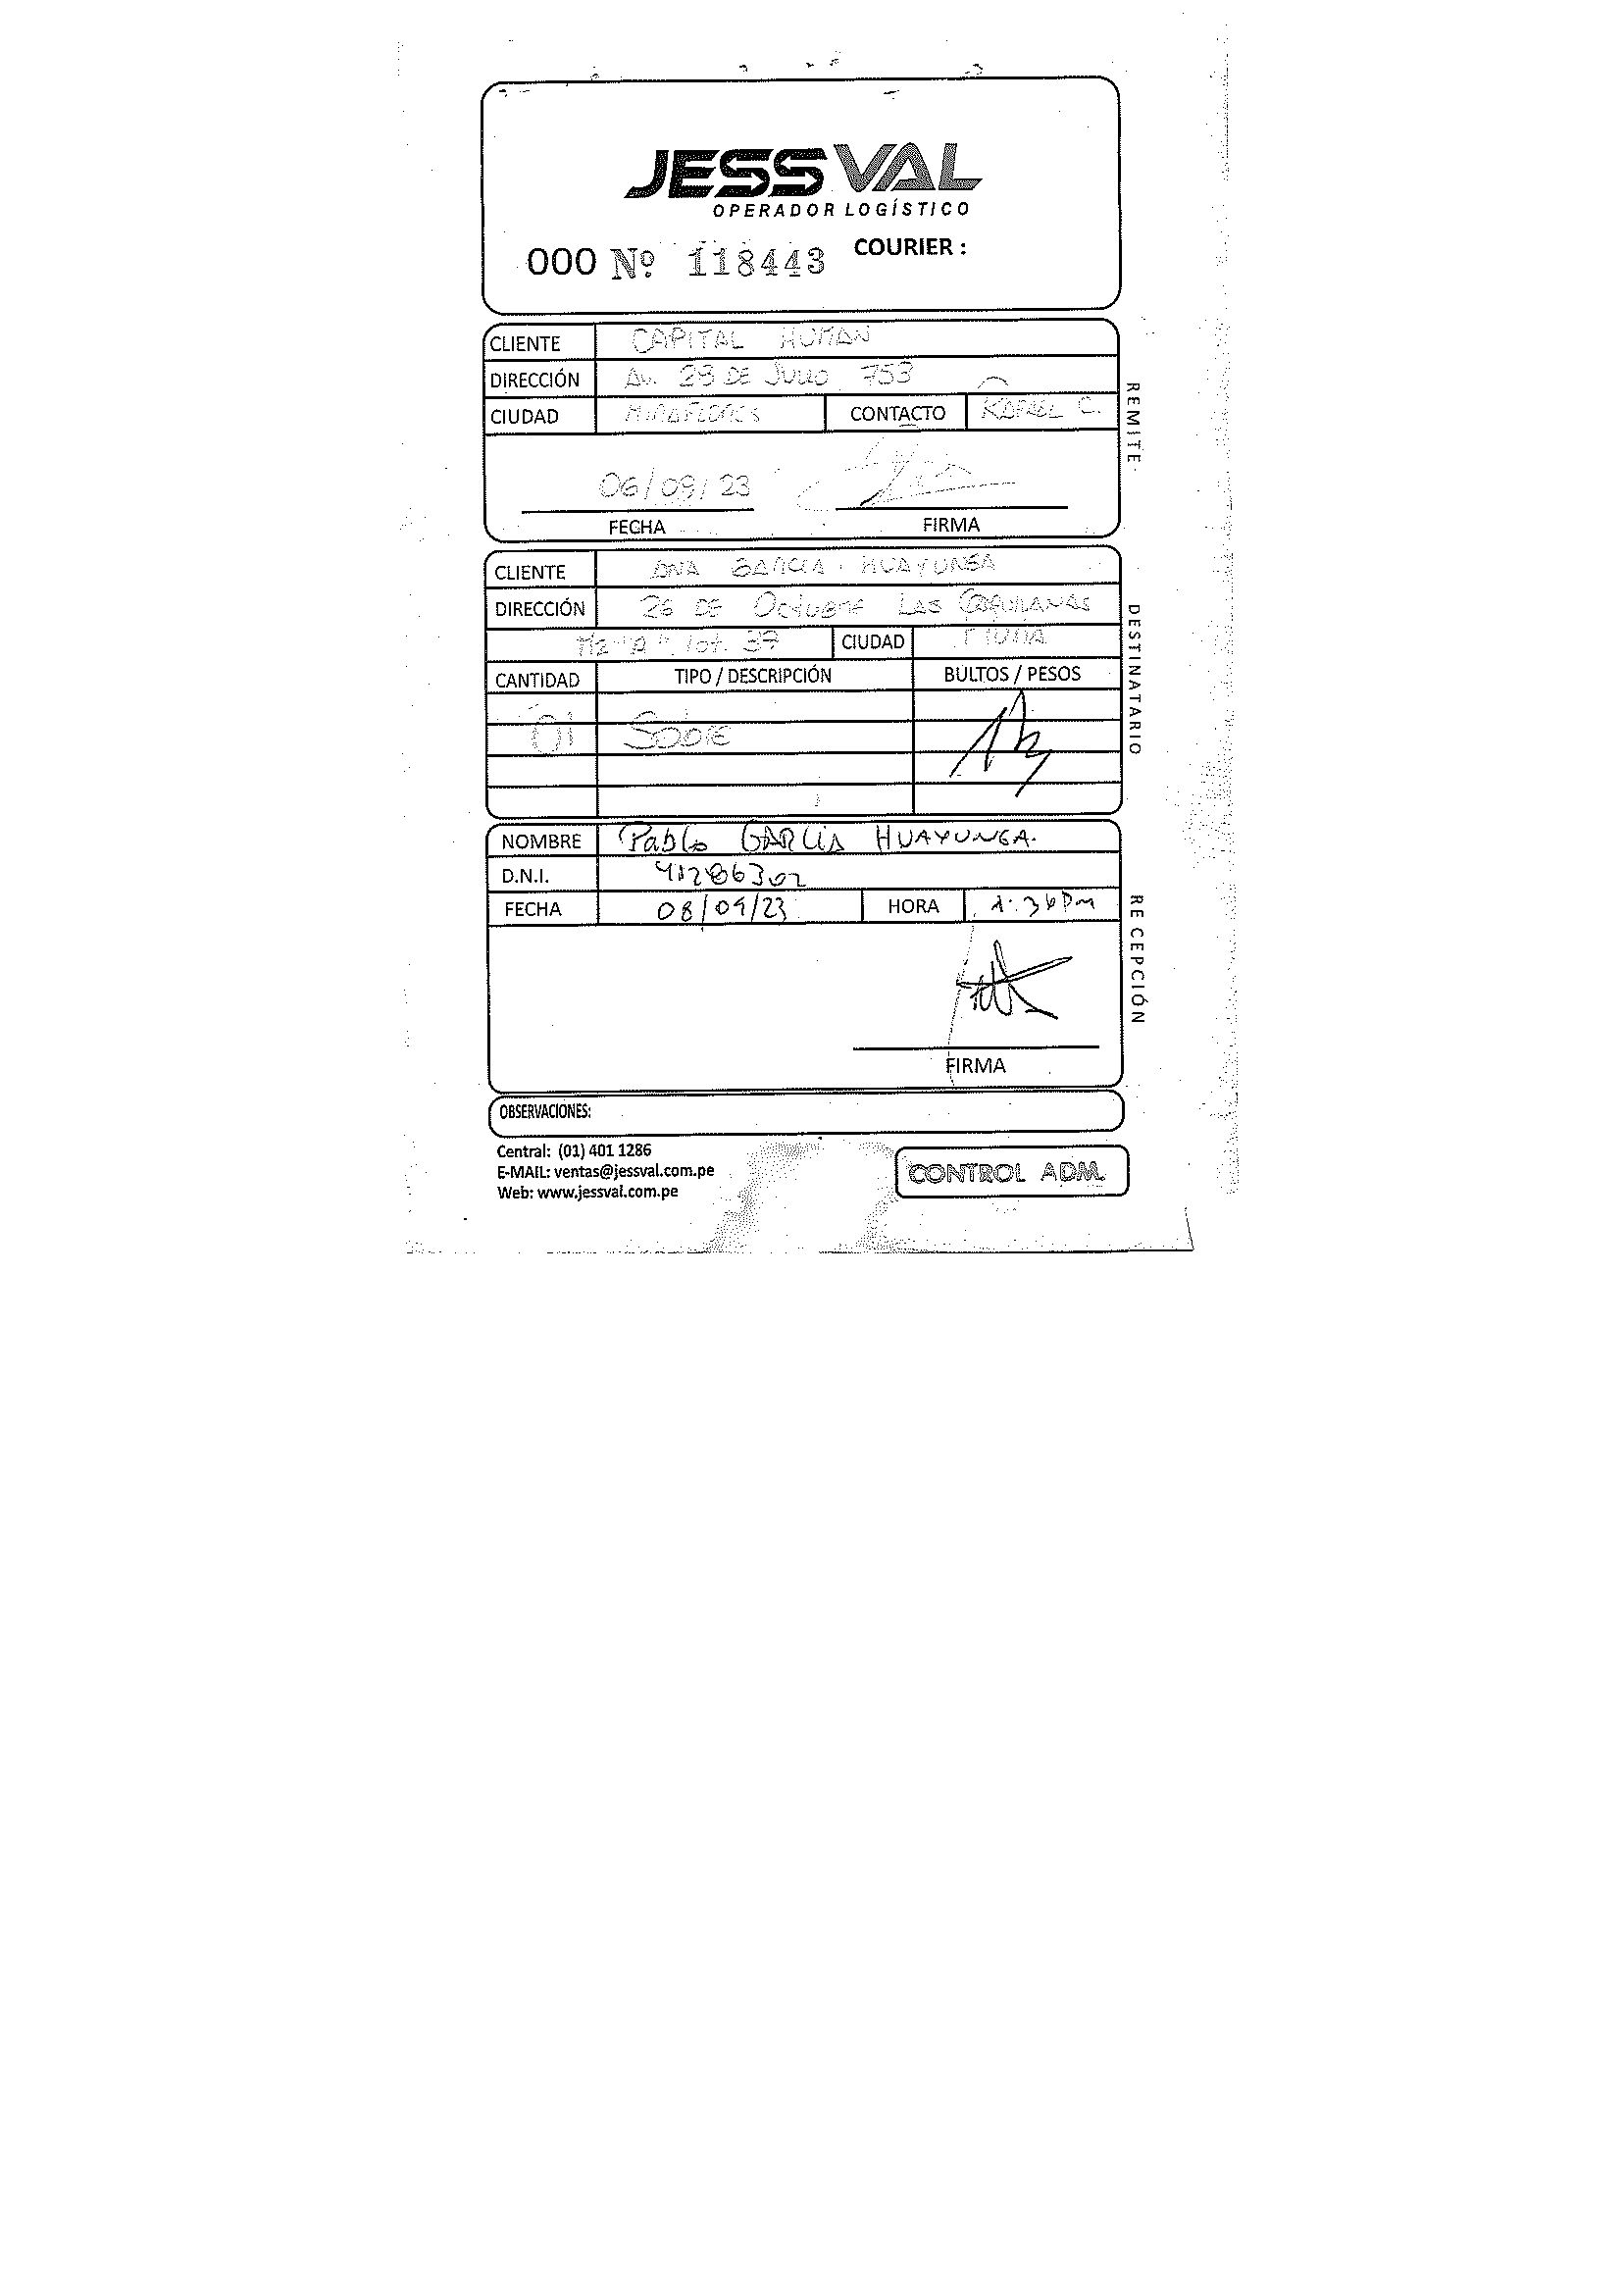 JESSVAL
OPERADOR LOGÍSTICO
000 Nº 118443 COURIER :
CLIENTE CAPITAL HUMAN
DIRECCIÓN Av. 28 DE JULIO 753
CIUDAD MIRAFLORES CONTACTO RAFAEL C.
REMITE
06/09/23
FECHA FIRMA
CLIENTE ANA GARCIA HUAYUNGA
DIRECCIÓN 26 DE OCTUBRE LAS
Mz "A" lot. 37 CIUDAD PIURA
CANTIDAD TIPO / DESCRIPCIÓN BULTOS / PESOS
01 SOBRE
DESTINATARIO
NOMBRE Pablo GARCIA HUAYUNGA.
D.N.I. 41286302
FECHA 08/09/23 HORA 1:36 Pm
RECEPCIÓN
FIRMA
OBSERVACIONES:
Central: (01) 401 1286
E-MAIL: ventas@jessval.com.pe
Web: www.jessval.com.pe
CONTROL ADM.